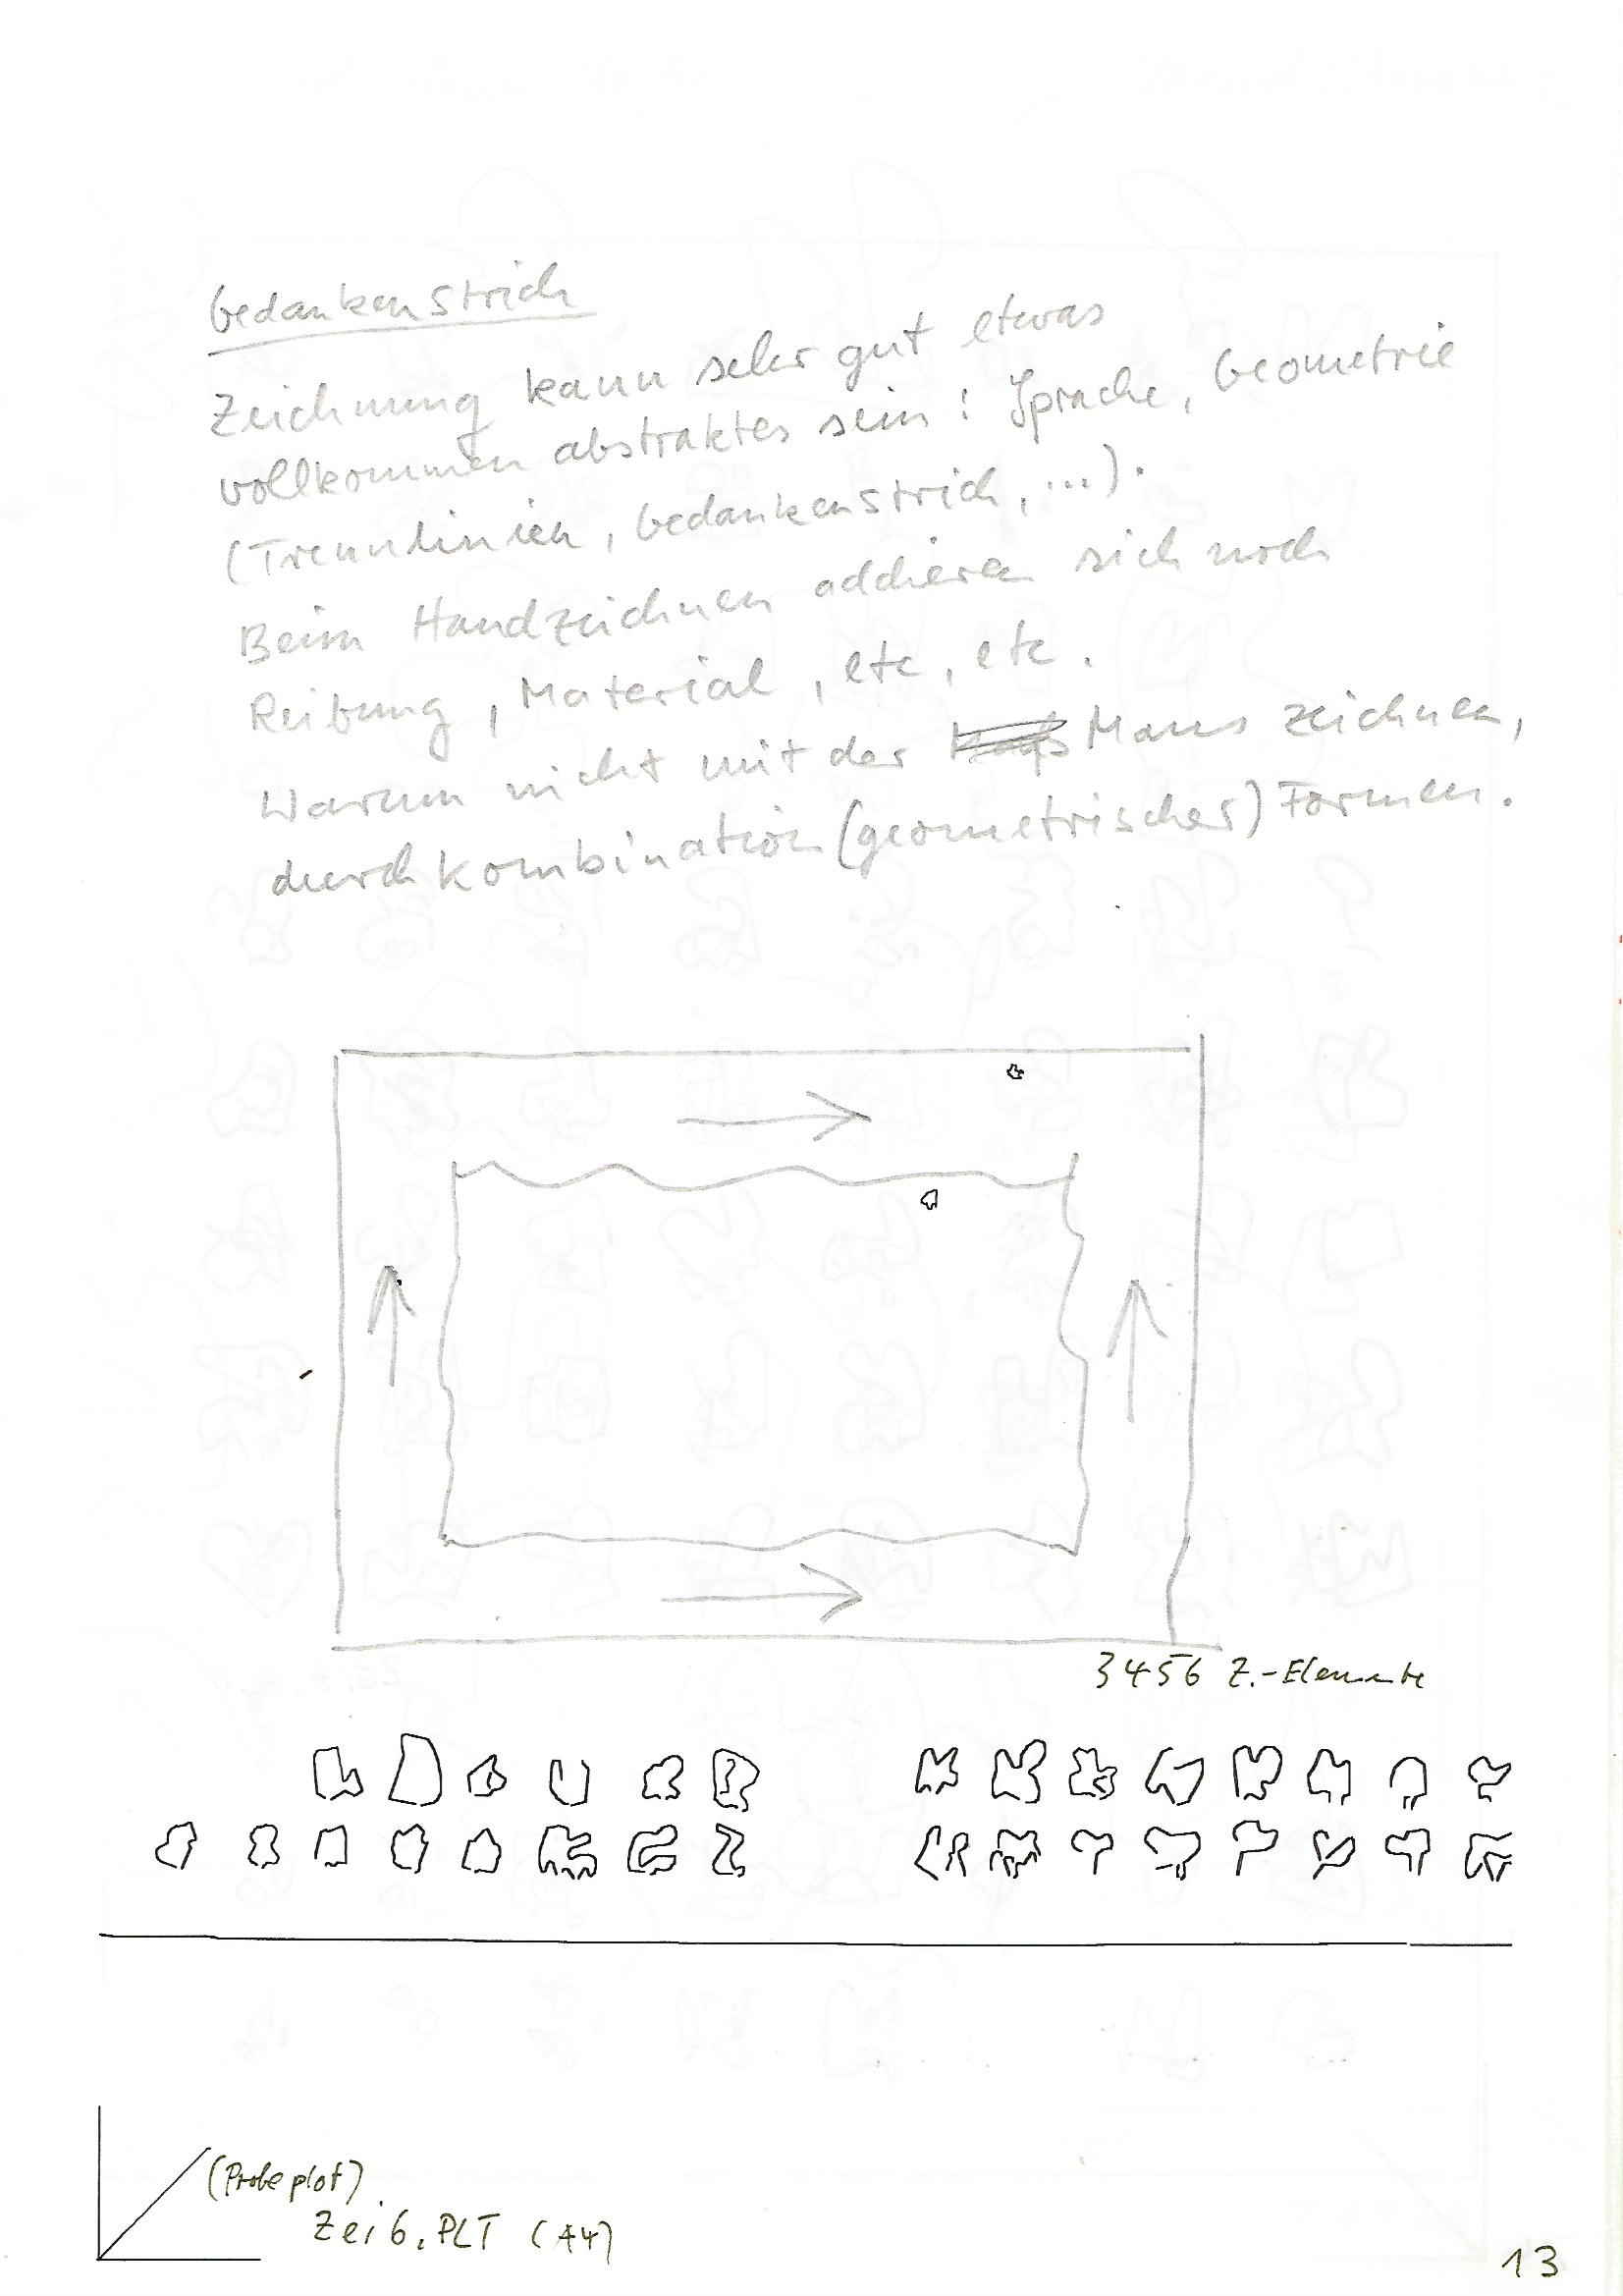 Gedankenstrich
Zeichnung kann sehr gut etwas
vollkommen abstraktes sein: Sprache, Geometrie
(Trennlinien, Gedankenstrich, ...).
Beim Handzeichnen addieren sich noch
Reibung, Material, etc, etc.
Warum nicht mit der Maus zeichnen,
durch Kombination (geometrischer) Formen.
3456 Z.-Elemente
(Probeplot)
Zei6.PLT (A4)
13